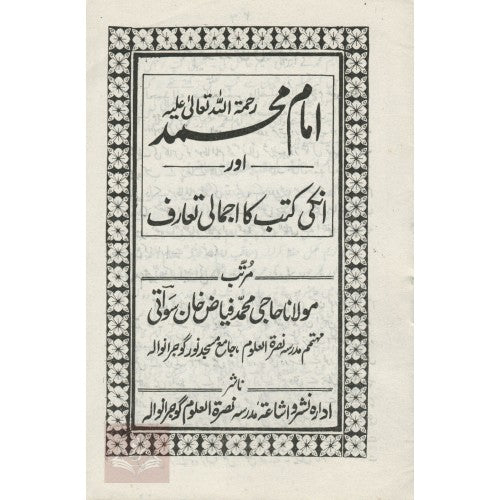 امام محمد رحمۃ اللہ تعالیٰ علیہ
اور
انکی کتب کا اجمالی تعارف
مرتب
مولانا حاجی محمد فیاض خان سواتی
مہتمم مدرسہ نصرۃ العلوم، جامع مسجد نور گوجرانوالہ
ناشر
ادارہ نشر و اشاعت مدرسہ نصرۃ العلوم گوجرانوالہ